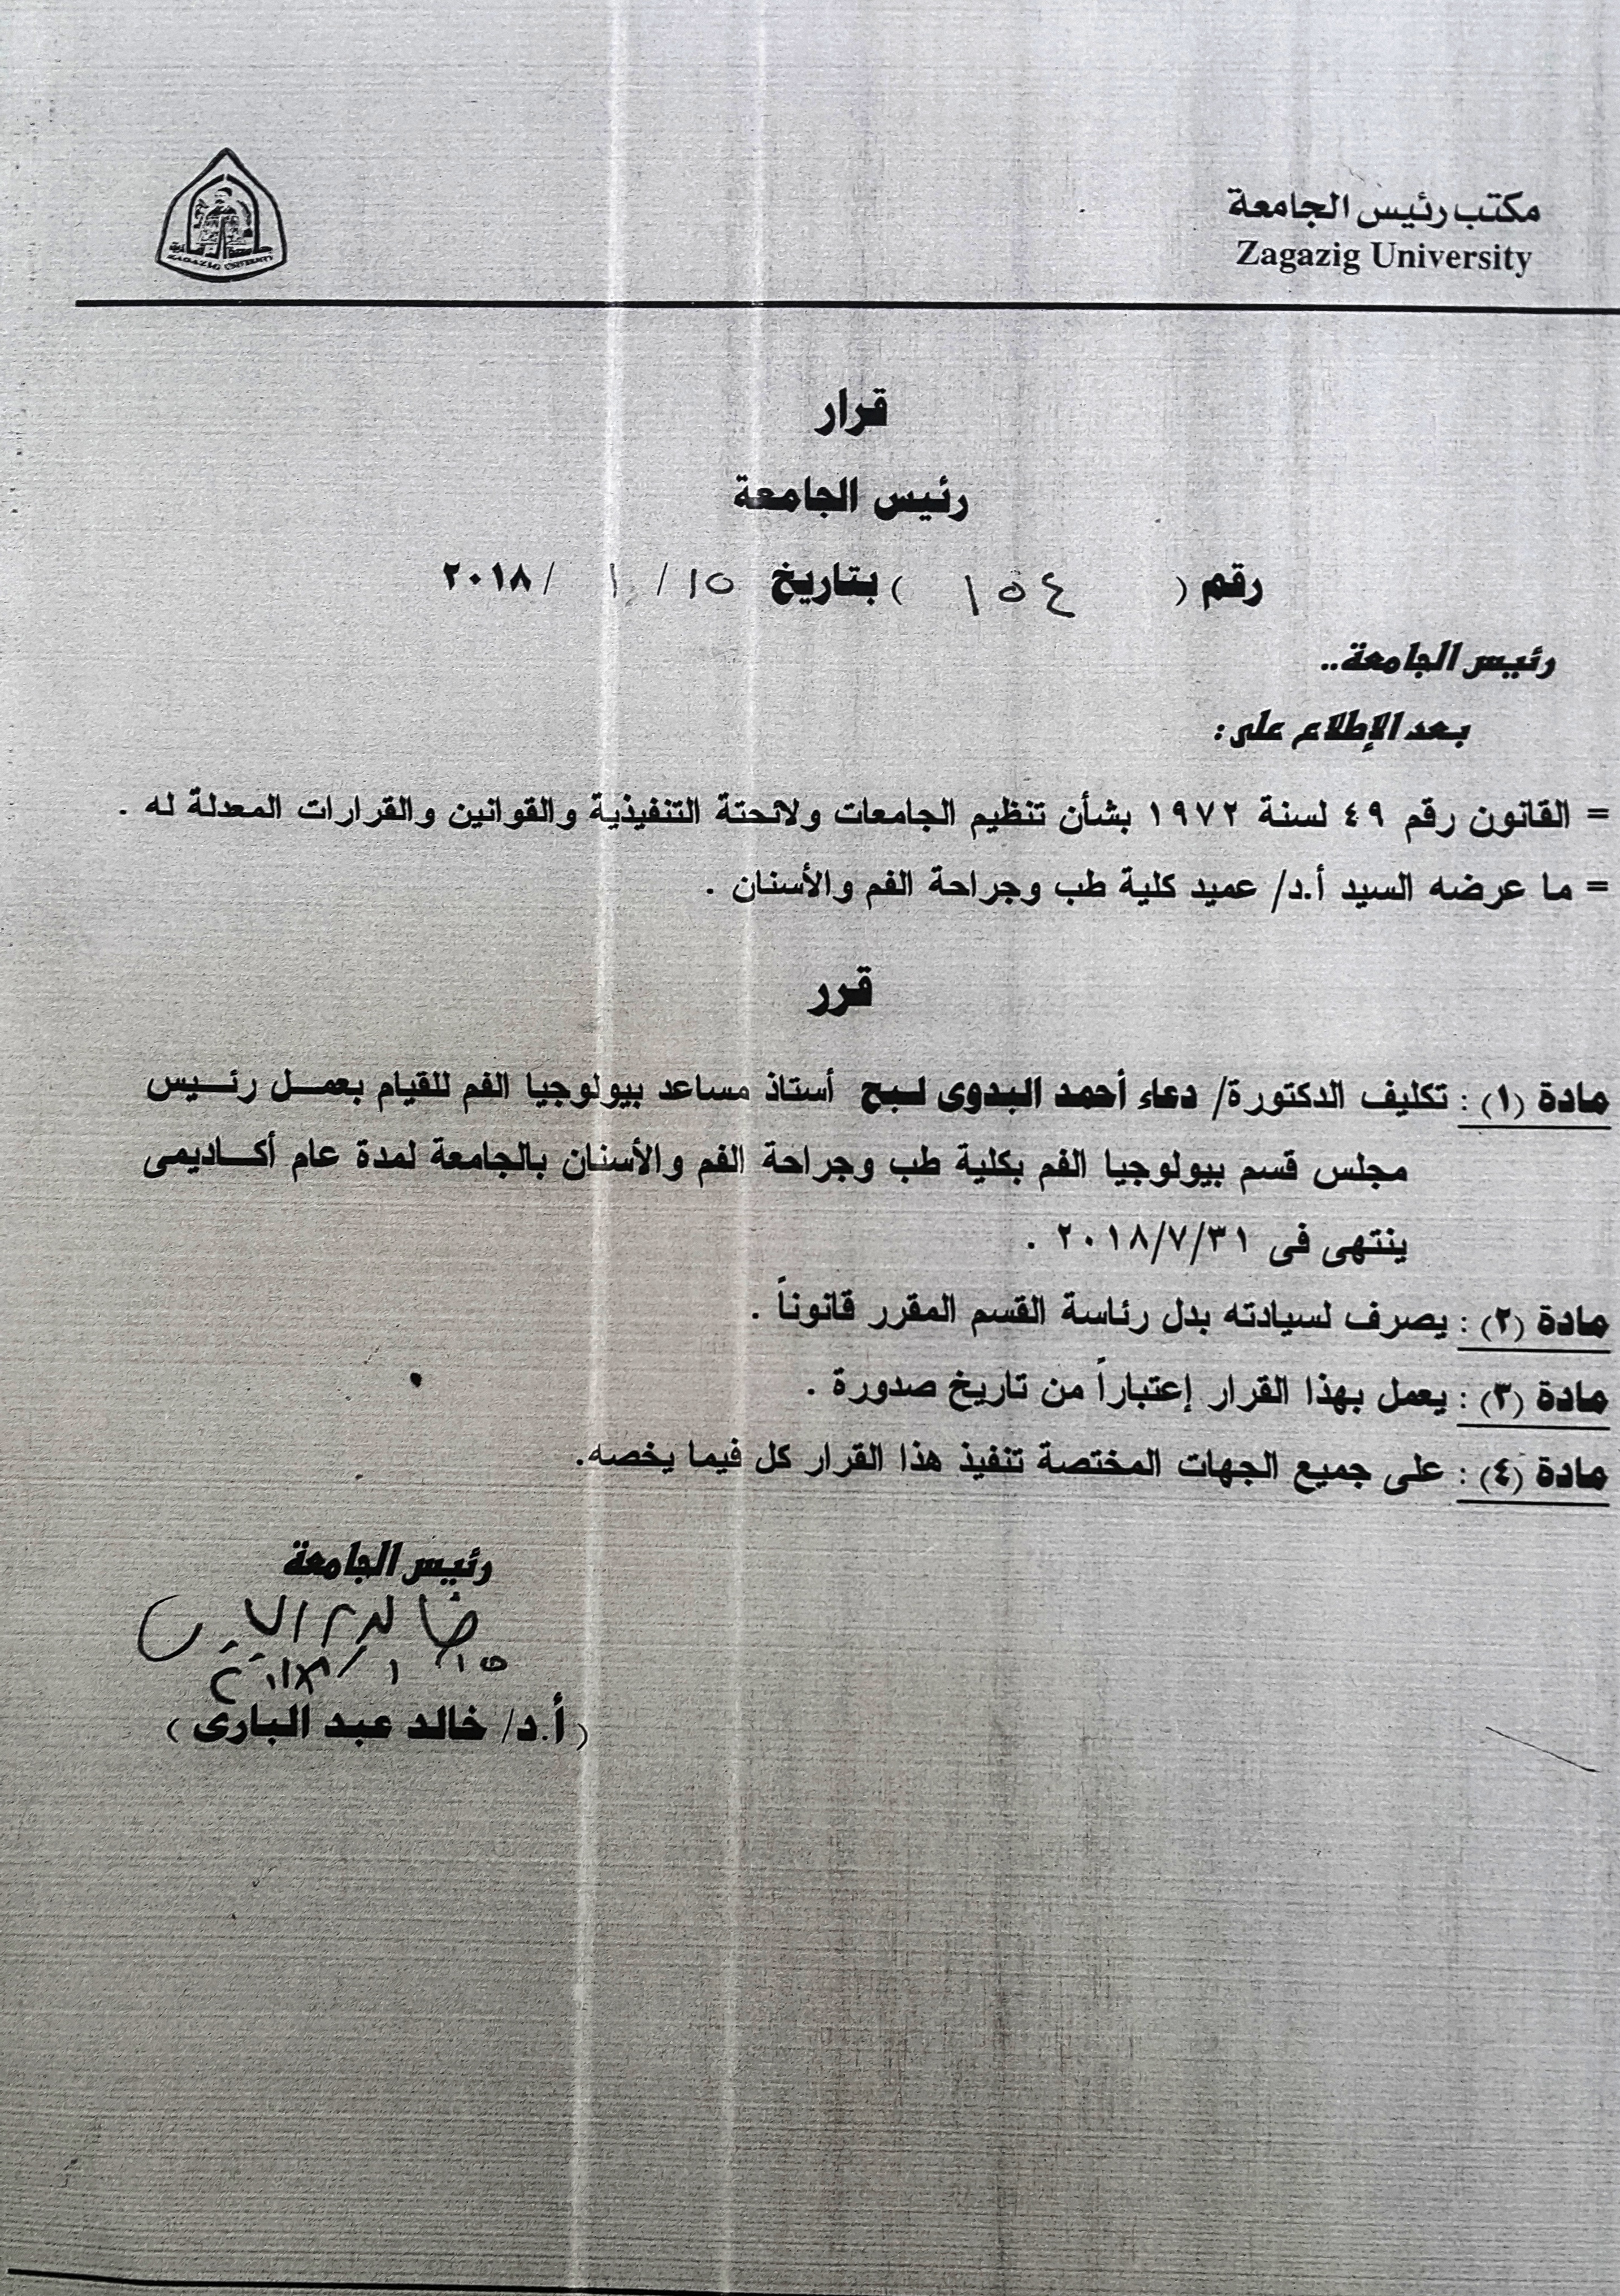 مكتب رئيس الجامعة
Zagazig University
ZAGAZIG UNIVERSITY
قرار
رئيس الجامعة
رقم ( ١٥٤ ) بتاريخ ١٥ / ١ / ٢٠١٨
رئيس الجامعة..
بعد الإطلاع على :
= القانون رقم ٤٩ لسنة ١٩٧٢ بشأن تنظيم الجامعات ولائحتة التنفيذية والقوانين والقرارات المعدلة له .
= ما عرضه السيد أ.د/ عميد كلية طب وجراحة الفم والأسنان .
قرر
مادة (١) : تكليف الدكتورة/ دعاء أحمد البدوى لبح أستاذ مساعد بيولوجيا الفم للقيام بعمل رئيس
مجلس قسم بيولوجيا الفم بكلية طب وجراحة الفم والأسنان بالجامعة لمدة عام أكاديمى
ينتهى فى ٢٠١٨/٧/٣١ .
مادة (٢) : يصرف لسيادته بدل رئاسة القسم المقرر قانوناً .
مادة (٣) : يعمل بهذا القرار إعتباراً من تاريخ صدورة .
مادة (٤) : على جميع الجهات المختصة تنفيذ هذا القرار كل فيما يخصه.
رئيس الجامعة
١٥ / ١ / ٢٠١٨
( أ.د/ خالد عبد البارى )